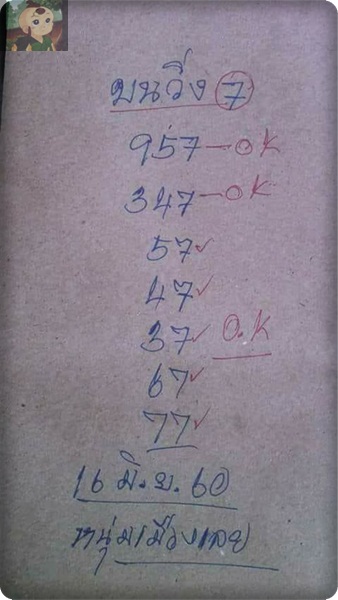 บนวิ่ง 7
957 - OK
347 - OK
57 ✓
47 ✓
37 ✓ O.K
67 ✓
77 ✓
16 มิ.ย. 60
หนุ่มเมืองเลย